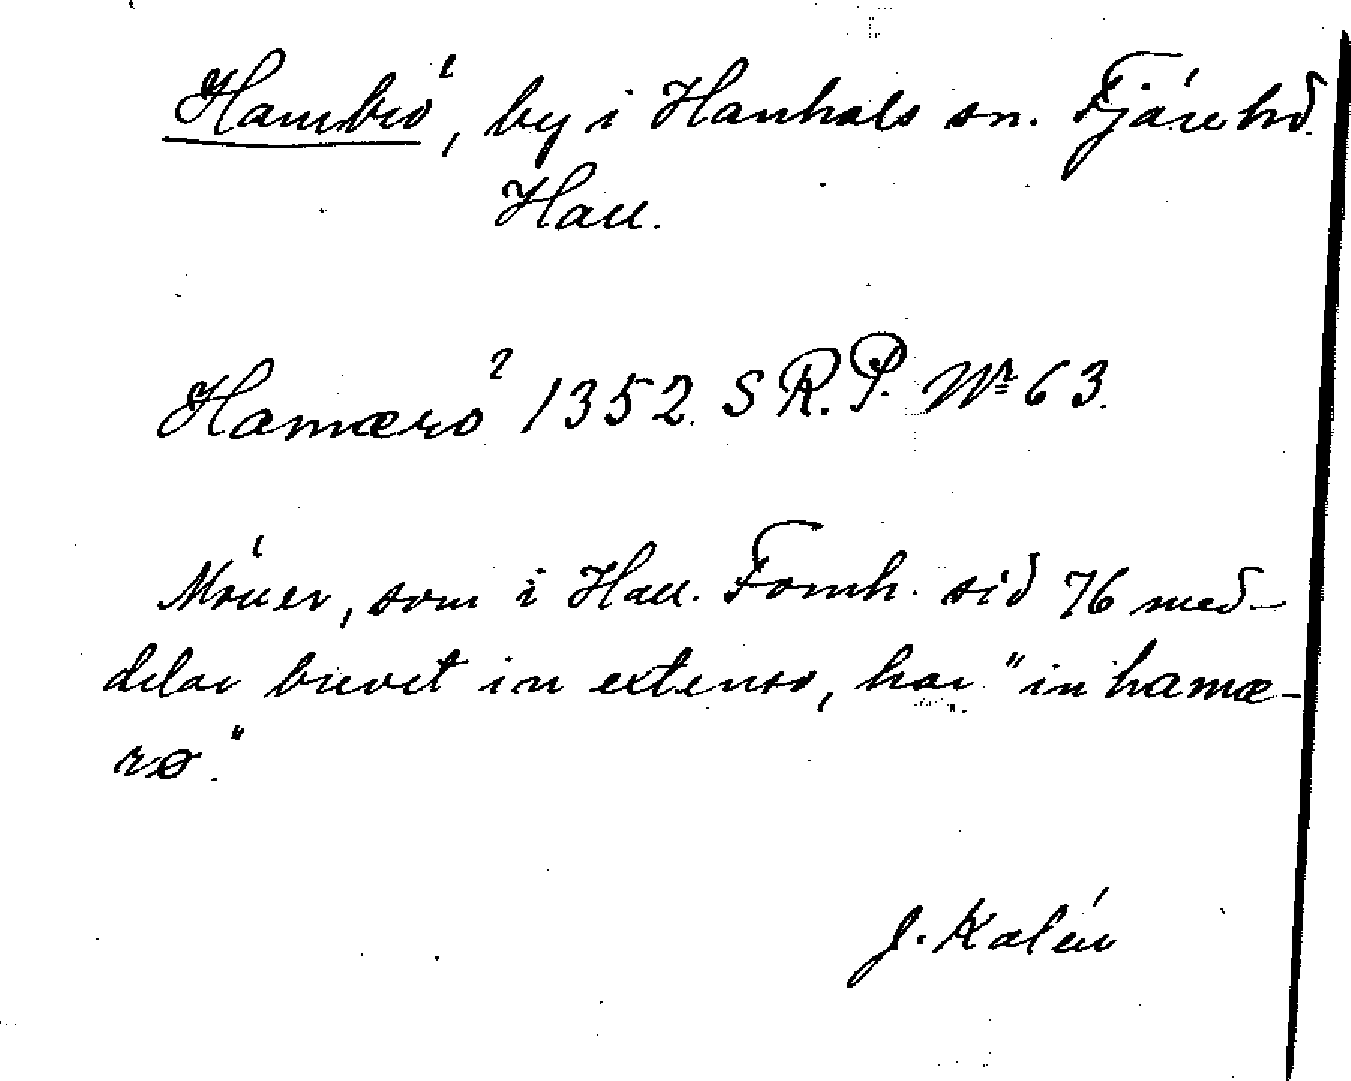 Hambrö, by i Hanhals sn. Fjäre hd.
Hall.
Hamærö 1352. S R. P. Nr 63.
Möller, som i Hall. Fornh. sid 76 med-
delar brevet in extenso, har "in hamæ-
rø."
J. Kalén